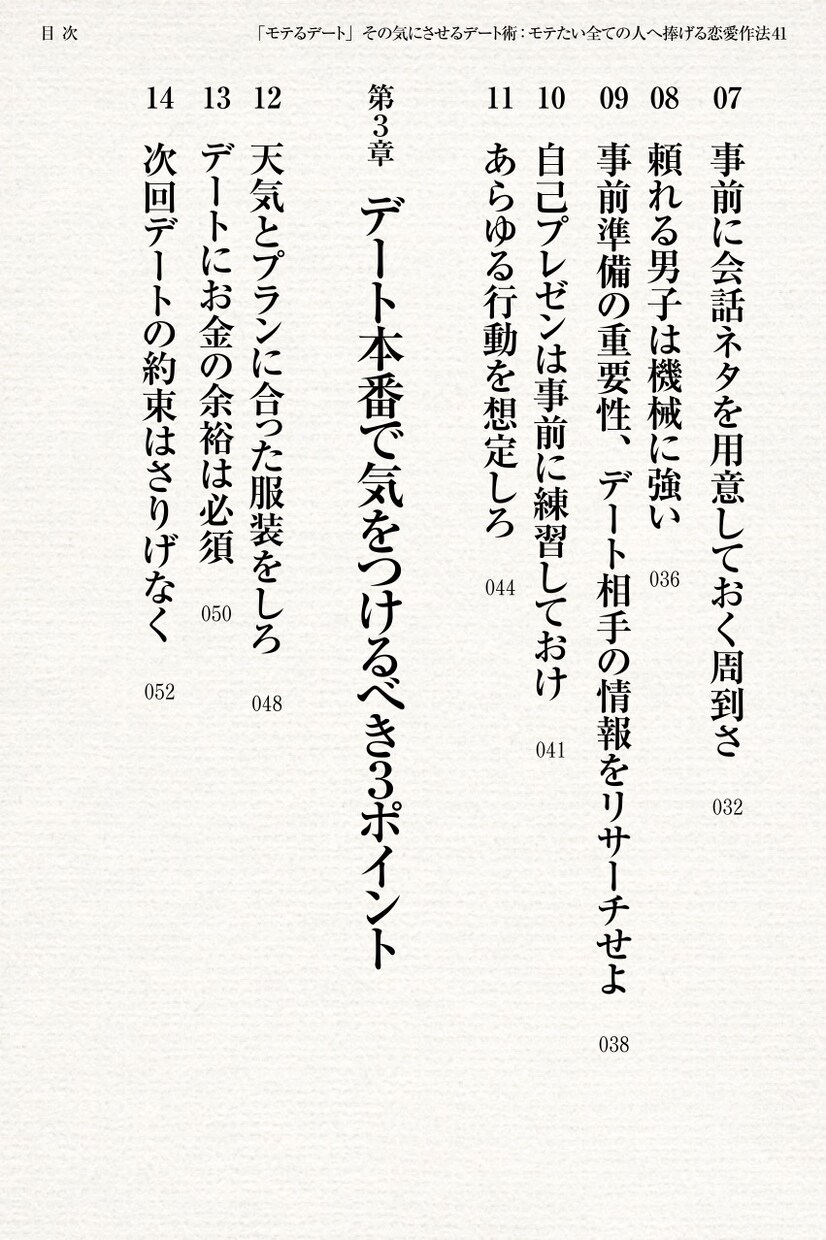 目次
「モテるデート」その気にさせるデート術：モテたい全ての人へ捧げる恋愛作法41
07 事前に会話ネタを用意しておく周到さ 032
08 頼れる男子は機械に強い 036
09 事前準備の重要性、デート相手の情報をリサーチせよ 038
10 自己プレゼンは事前に練習しておけ 041
11 あらゆる行動を想定しろ 044
第3章 デート本番で気をつけるべき3ポイント
12 天気とプランに合った服装をしろ 048
13 デートにお金の余裕は必須 050
14 次回デートの約束はさりげなく 052